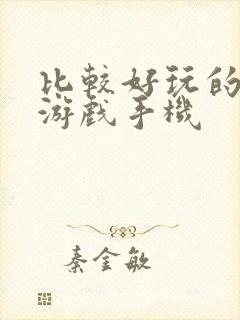 比較好玩的
游戲手機
秦金敏